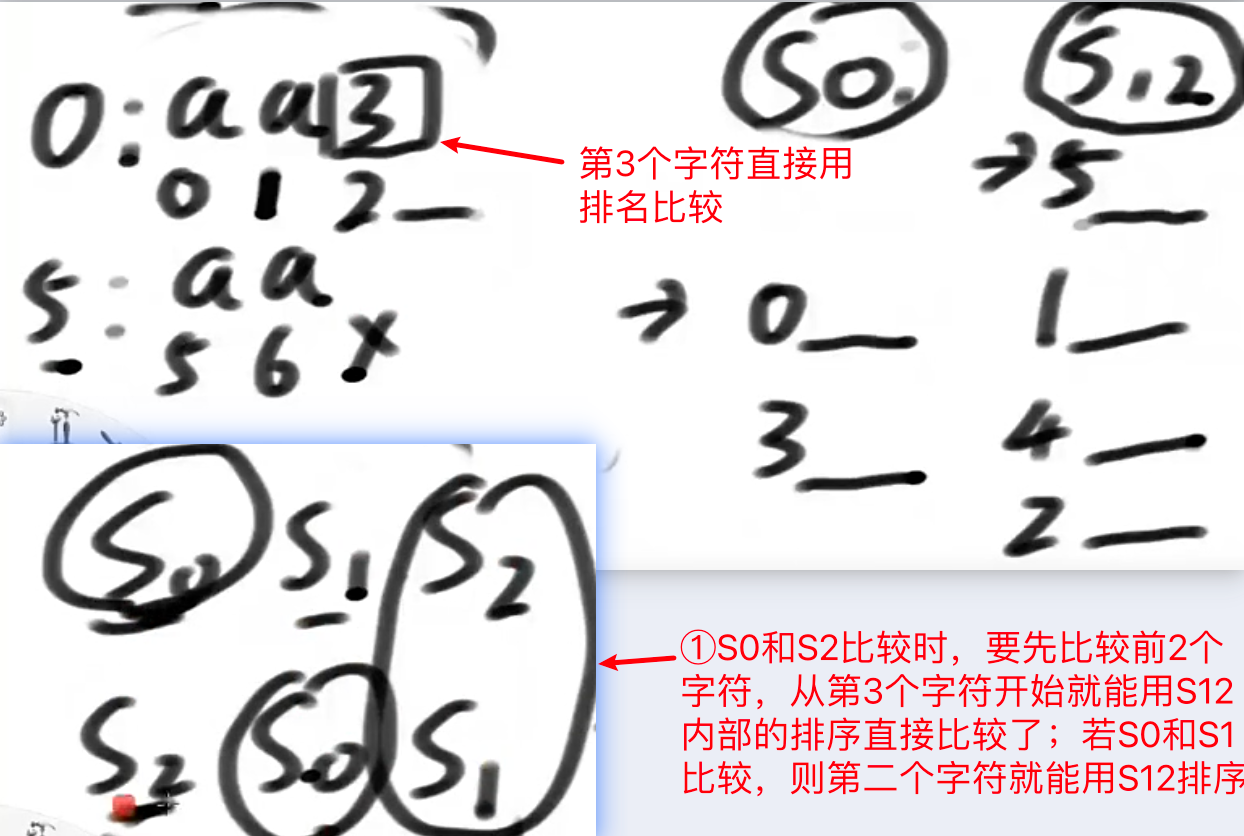 0: a a 3
0 1 2
5: a a
5 6 x
第3个字符直接用
排名比较
S0. S12
→ 5
→ 0 1
3 4
2
S0 S1 S2
S2 S0 S1
①S0和S2比较时，要先比较前2个
字符，从第3个字符开始就能用S12
内部的排序直接比较了；若S0和S1
比较，则第二个字符就能用S12排序